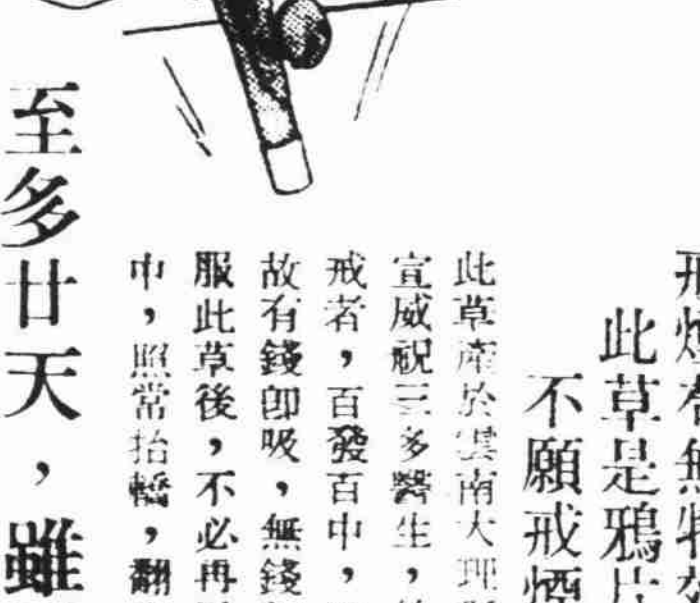 戒煙有無特效
此草是鴉片
不願戒煙
此草產於雲南大理
宣威祝三多醫生，
戒者，百發百中，
故有錢卽吸，無錢
服此草後，不必再
巾，照常抬轎，翻
至多廿天，雖